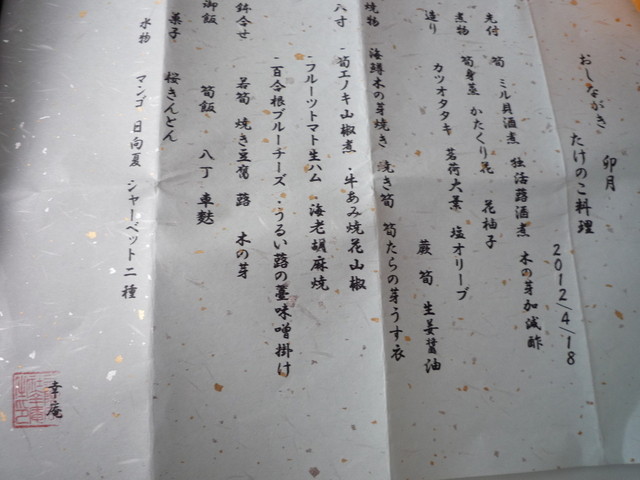 おしながき 卯月
たけのこ料理
2012/4/18
先付 筍 ミル貝酒煮 独活蕗酒煮 木の芽加減酢
煮物 筍身薯 かたくり花 花柚子
造り カツオタタキ 茗荷大葉 塩オリーブ
蕨 筍 生姜醤油
焼物 海鱒木の芽焼き 焼き筍 筍たらの芽うす衣
八寸 ・筍エノキ山椒煮 ・牛あみ焼花山椒
・フルーツトマト生ハム ・海老胡麻焼
・百合根ブルーチーズ ・うるい蕗の薹味噌掛け
鉢合せ 若筍 焼き豆腐 蕗 木の芽
御飯 筍飯 八丁 車麩
菓子 桜きんとん
水物 マンゴ 日向夏 シャーベット二種
幸庵